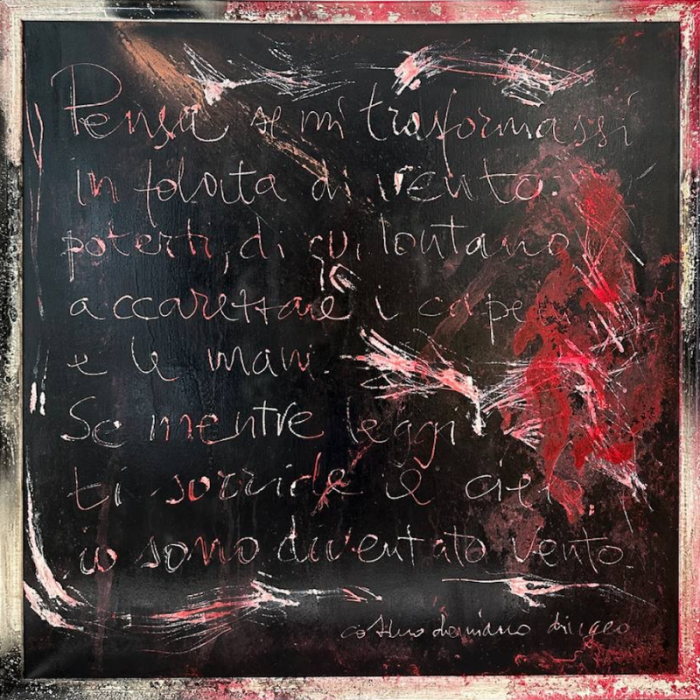 Pensa se mi trasformassi
in folata di vento.
poterti, di qui, lontano
accarezzare i cape
e le mani.
Se mentre leggi
ti sorride il cielo
io sono diventato vento.